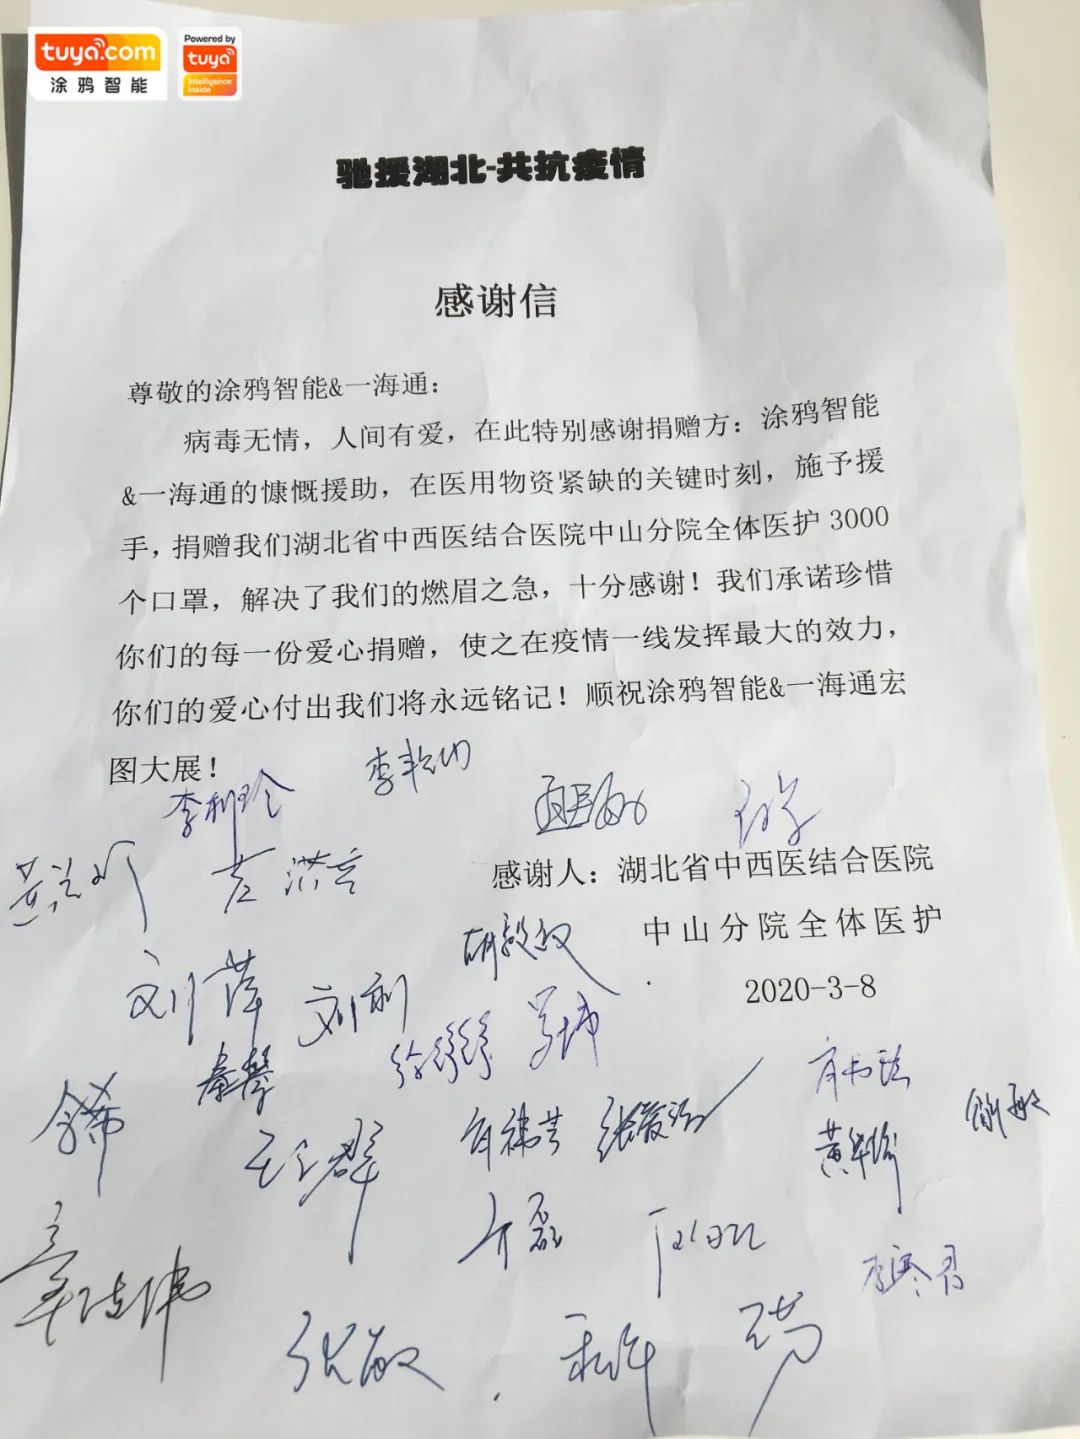 tuya.com
涂鸦智能
Powered by
tuya
Intelligence
Inside
驰援湖北-共抗疫情
感谢信
尊敬的涂鸦智能&一海通：
病毒无情，人间有爱，在此特别感谢捐赠方：涂鸦智能
&一海通的慷慨援助，在医用物资紧缺的关键时刻，施予援
手，捐赠我们湖北省中西医结合医院中山分院全体医护 3000
个口罩，解决了我们的燃眉之急，十分感谢！我们承诺珍惜
你们的每一份爱心捐赠，使之在疫情一线发挥最大的效力，
你们的爱心付出我们将永远铭记！顺祝涂鸦智能&一海通宏
图大展！
李利玲
感谢人：湖北省中西医结合医院
中山分院全体医护
2020-3-8
刘萍
刘利
张敏